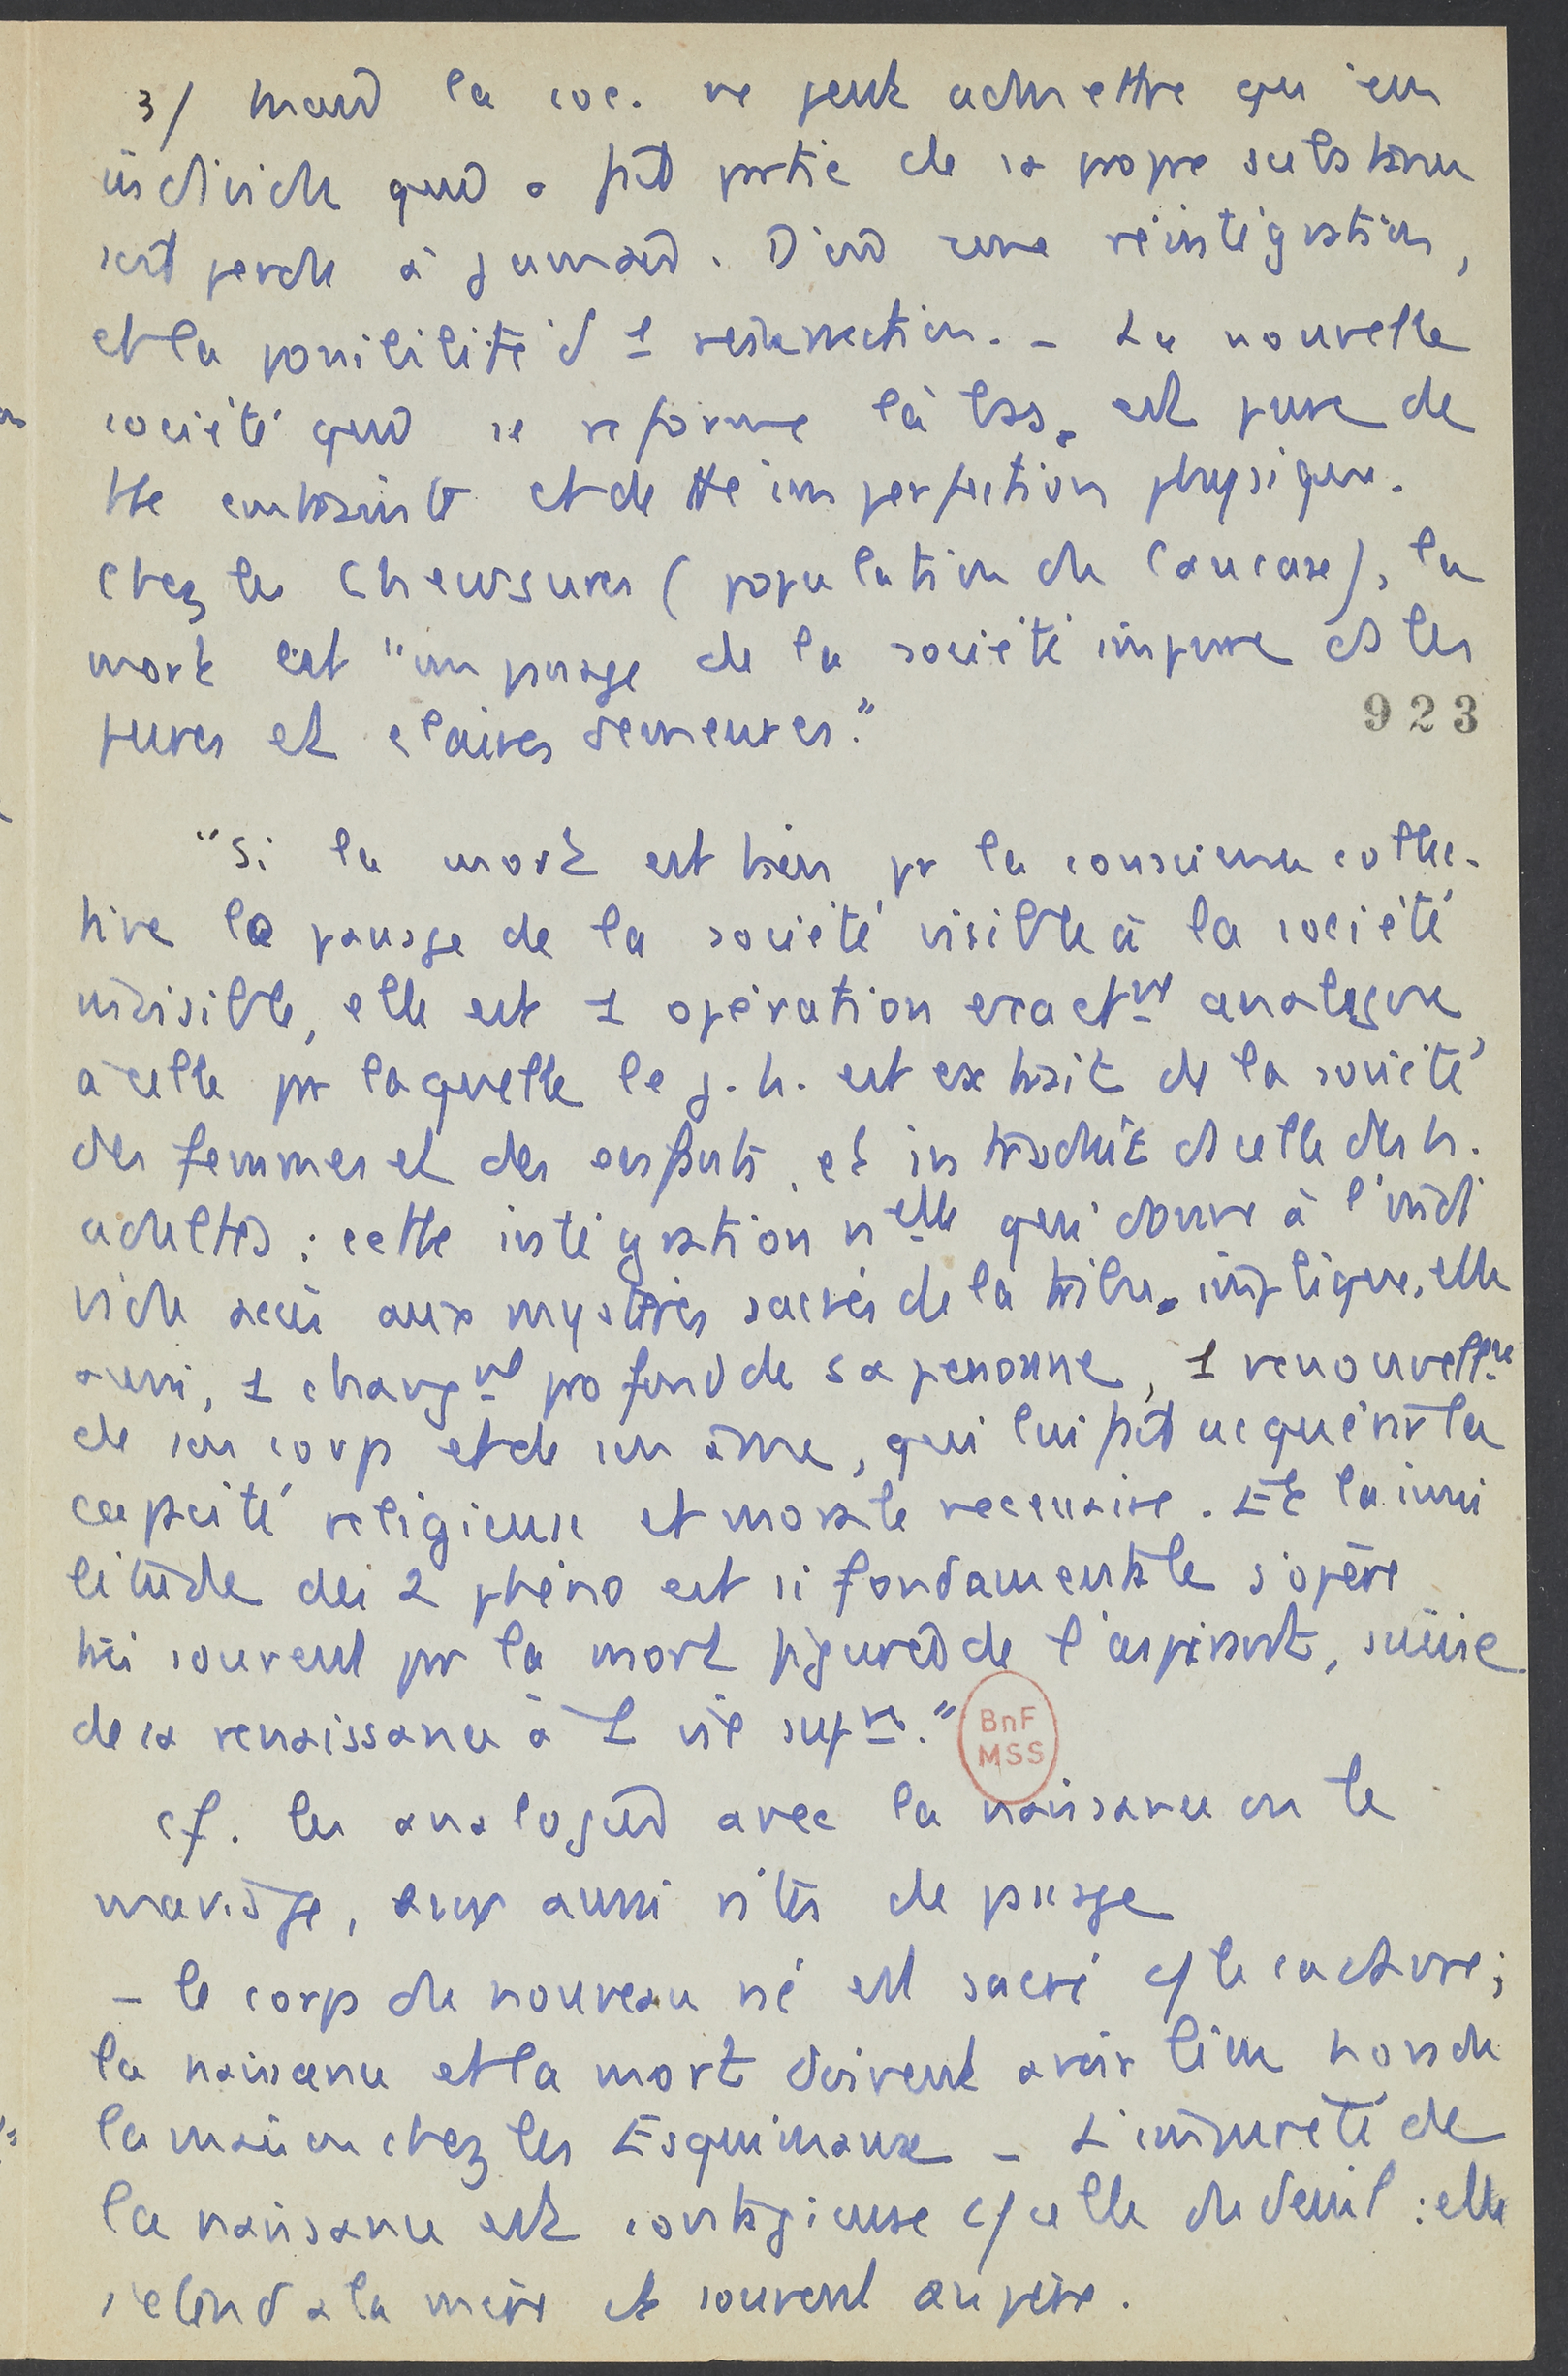 3/ Mais la soc. ne peut admettre qu'un
individu qui a fait partie de sa propre substance
soit perdu à jamais. D'où une réintégration,
et la possibilité d'1 résurrection. - La nouvelle
société qui se reforme là bas, est pure de
tte contrainte et de tte imperfection physique.
Chez les Chewsures (population du Caucase), la
mort est "un passage de la société impure ds les
pures et claires demeures."
923
"Si la mort est bien pr la conscience collec-
tive le passage de la société visible à la société
invisible, elle est 1 opération exactmt analogue
à celle pr laquelle le j.h. est extrait de la société
des femmes et des enfants, et introduit ds celle des h.
adultes : cette intégration nelle qui donne à l'indi
vidu accès aux mystères sacrés de la tribu, implique, elle
aussi, 1 changmt profond de sa personne, 1 renouvellmt
de son corps et de son âme, qui lui fait acquérir la
capacité religieuse et morale necessaire. Et la simi
litude des 2 phéno est si fondamentale s'opère
très souvent pr la mort figurée de l'aspirant, suivie
de sa renaissance à 1 vie supre."
BnF
MSS
cf. les analogies avec la naissance ou le
mariage, eux aussi rites de passage
- le corps du nouveau né est sacré c/ le cadavre;
la naissance et la mort doivent avoir lieu hors de
la maison chez les Esquimaux - L'impureté de
la naissance est contagieuse c/ celle du deuil : elle
s'étend a la mère et souvent au père.